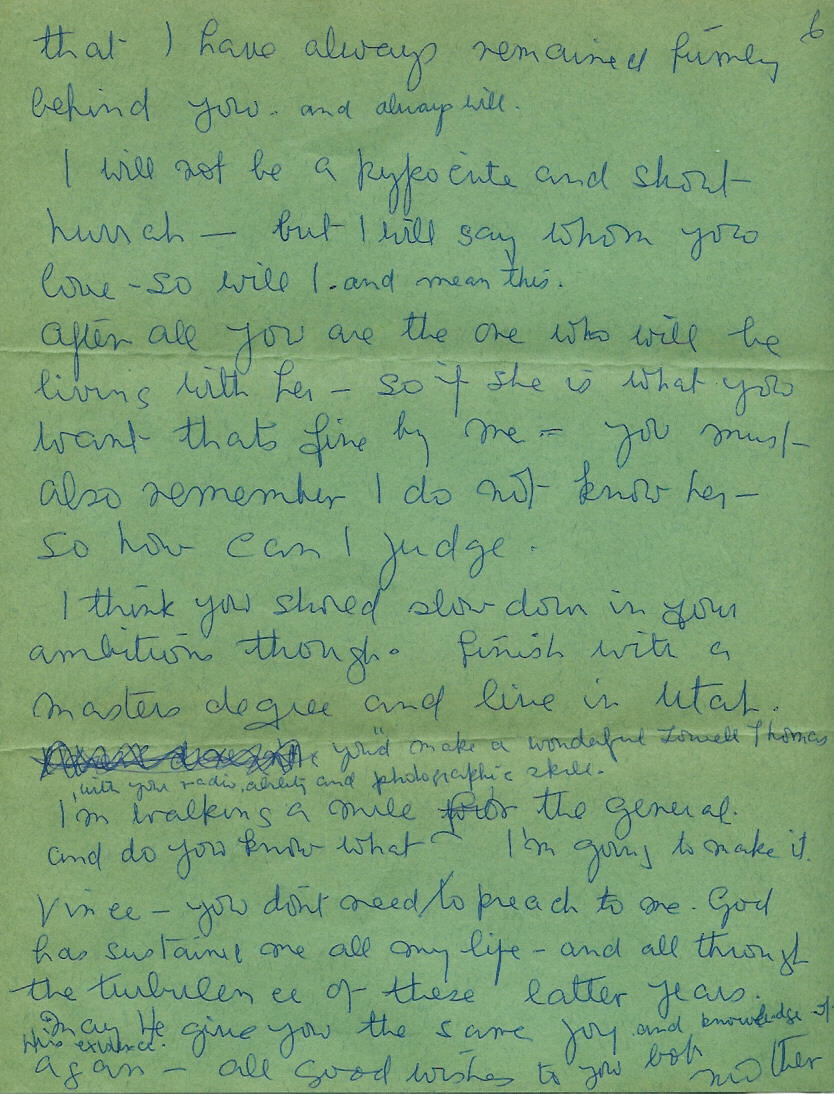 6
that I have always remained firmly
behind you. and always will.
I will not be a hypocrite and shout
hurrah — but I will say whom you
love - so will I. and mean this.
After all you are the one who will be
living with her - so if she is what you
want thats fine by me = you must
also remember I do not know her —
so how can I judge.
I think you should slow down in your
ambitions though. Finish with a
masters degree and live in Utah.
you'd make a wonderful Lowell Thomas
with your radio, ability and photographic skill.
I'm walking a mile for the general.
and do you know what — I'm going to make it.
Vince — you dont need to preach to me. God
has sustained me all my life - and all through
the turbulence of these latter years.
May He give you the same joy and knowledge of
His existence.
Again — all good wishes to you both Mother